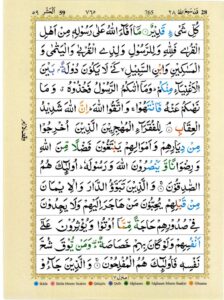 28 قَدْ سَمِعَ اللهُ ٢٨ 765 ٧٦٥ 59 الْحَشْر ٥٩
كُلِّ شَيْءٍ قَدِيْرٌ مَاۤ اَفَآءَ اللّٰهُ عَلٰى رَسُوْلِهٖ مِنْ اَهْلِ
الْقُرٰى فَلِلّٰهِ وَلِلرَّسُوْلِ وَلِذِى الْقُرْبٰى وَالْيَتٰمٰى وَ
الْمَسٰكِيْنِ وَابْنِ السَّبِيْلِ كَىْ لَا يَكُوْنَ دُوْلَةًۢ بَيْنَ
الْاَغْنِيَآءِ مِنْكُمْ وَمَاۤ اٰتٰىكُمُ الرَّسُوْلُ فَخُذُوْهُ وَمَا نَهٰىكُمْ
عَنْهُ فَانْتَهُوْا وَاتَّقُوا اللّٰهَ اِنَّ اللّٰهَ شَدِيْدُ
الْعِقَابِ لِلْفُقَرَآءِ الْمُهٰجِرِيْنَ الَّذِيْنَ اُخْرِجُوْا
مِنْ دِيَارِهِمْ وَاَمْوَالِهِمْ يَبْتَغُوْنَ فَضْلًا مِّنَ اللّٰهِ
وَرِضْوَانًا وَّيَنْصُرُوْنَ اللّٰهَ وَرَسُوْلَهٗ اُولٰٓئِكَ هُمُ
الصّٰدِقُوْنَ وَالَّذِيْنَ تَبَوَّؤُ الدَّارَ وَالْاِيْمَانَ
مِنْ قَبْلِهِمْ يُحِبُّوْنَ مَنْ هَاجَرَ اِلَيْهِمْ وَلَا يَجِدُوْنَ
فِىْ صُدُوْرِهِمْ حَاجَةً مِّمَّاۤ اُوْتُوْا وَيُؤْثِرُوْنَ عَلٰۤى
اَنْفُسِهِمْ وَلَوْ كَانَ بِهِمْ خَصَاصَةٌ وَمَنْ يُّوْقَ شُحَّ
نَفْسِهٖ فَاُولٰٓئِكَ هُمُ الْمُفْلِحُوْنَ وَالَّذِيْنَ جَآءُوْ
Ikhfa Ikhfa Meem Saakin Qalqala Qalb Idghaam Idghaam Meem Saakin Ghunna